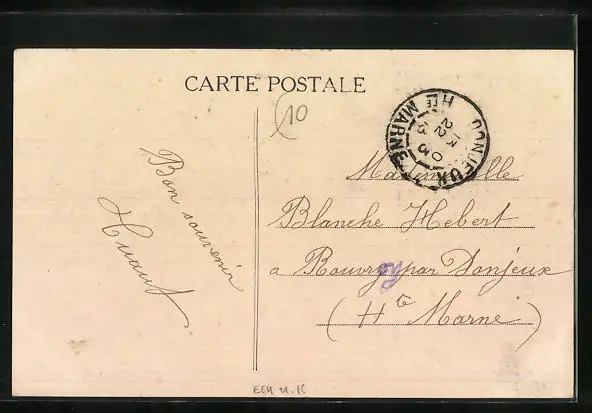 CARTE POSTALE
(10
DONJEUX
HTE MARNE
22
Bon souvenir
Mademoiselle
Blanche Hebert
a Rouvroy par Donjeux
(Hte Marne)